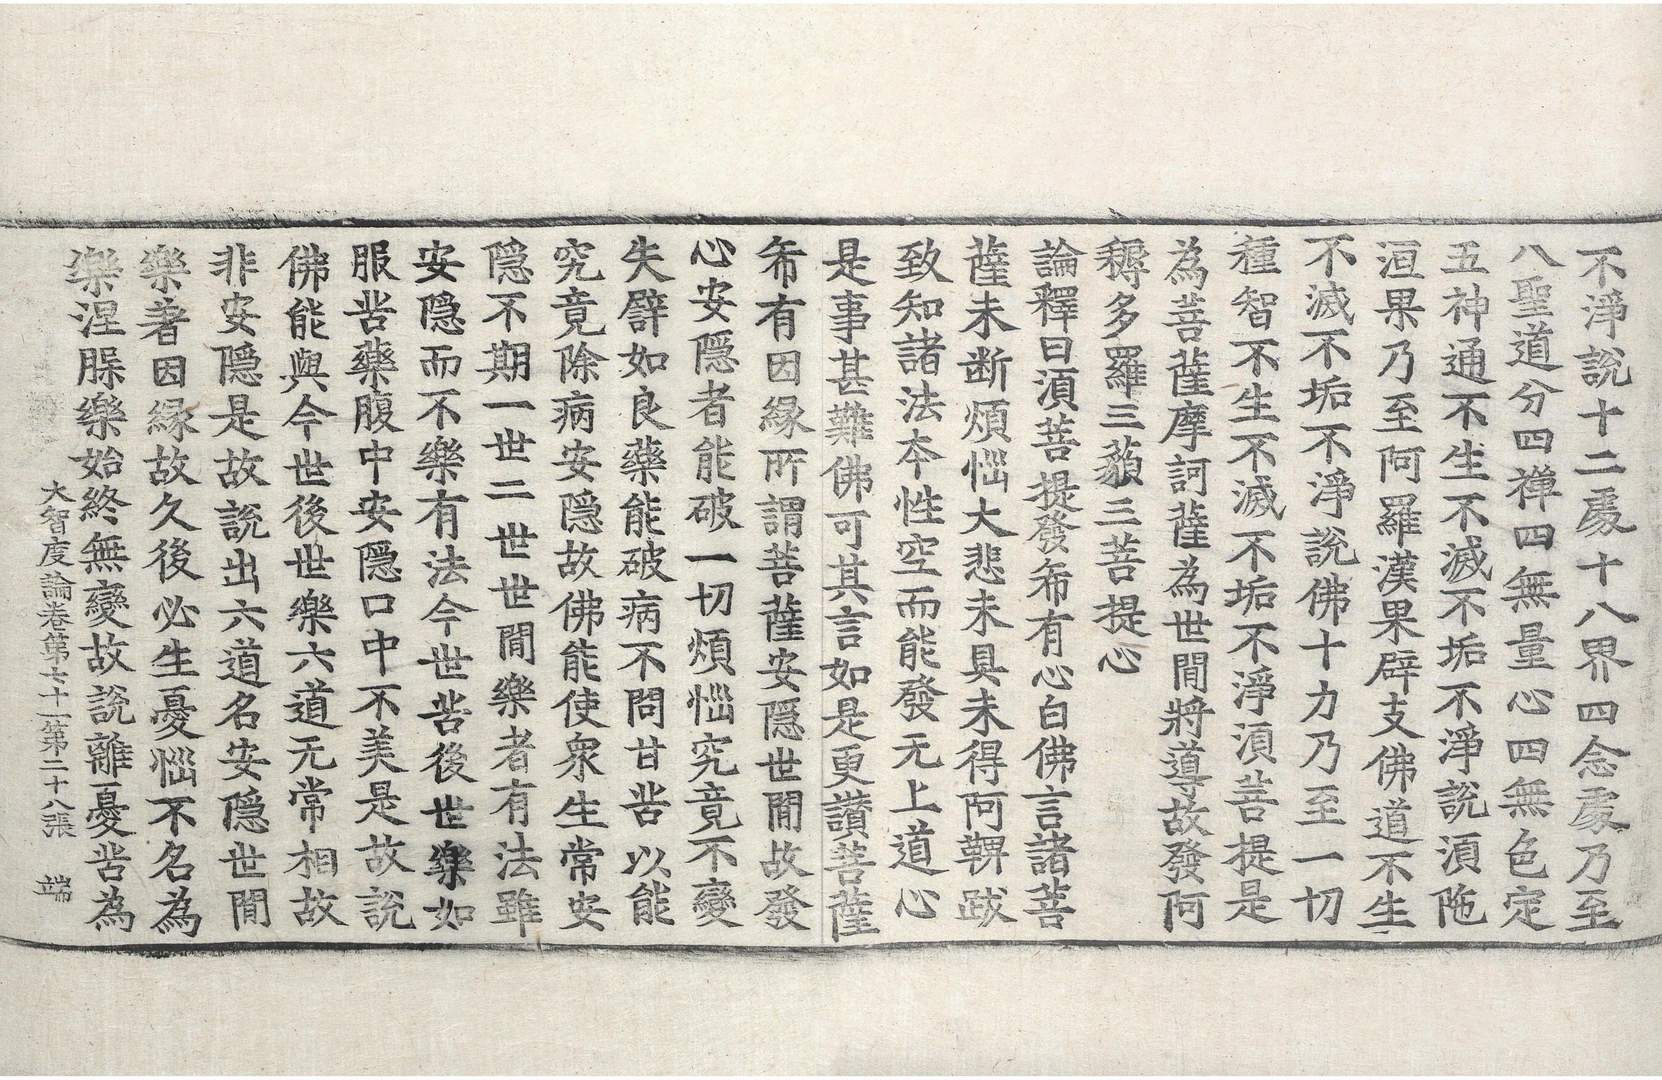 不淨說十二處十八界四念處乃至
八聖道分四禪四無量心四無色定
五神通不生不滅不垢不淨說湏陁
洹果乃至阿羅漢果辟支佛道不生
不滅不垢不淨說佛十力乃至一切
種智不生不滅不垢不淨湏菩提是
為菩薩摩訶薩為世閒將導故發阿
耨多羅三藐三菩提心
論釋曰湏菩提發希有心白佛言諸菩
薩未断煩惱大悲未具未得阿鞞跋
致知諸法夲性空而能發无上道心
是事甚難佛可其言如是更讃菩薩
希有因緣所謂菩薩安隱世閒故發
心安隱者能破一切煩惱究竟不變
失譬如良藥能破病不問甘苦以能
究竟除病安隱故佛能使衆生常安
隱不期一世二世世閒樂者有法雖
安隱而不樂有法今世苦後世樂如
服苦藥腹中安隱口中不美是故說
佛能與今世後世樂六道无常相故
非安隱是故說出六道名安隱世閒
樂著因緣故久後必生憂惱不名為
樂涅槃樂始終無變故說離憂苦為
大智度論卷第七十一第二十八張 端